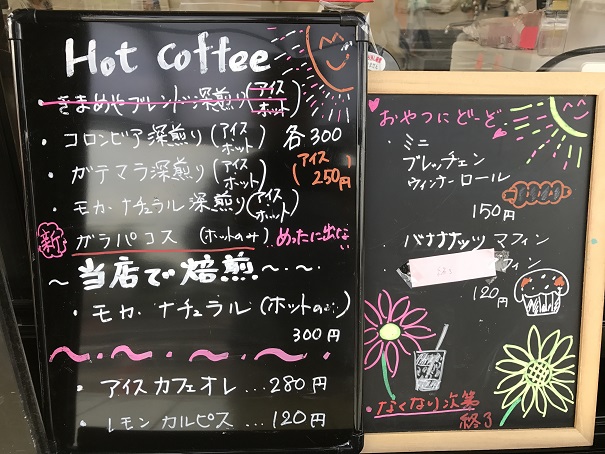 Hot Coffee
・きまぐれブレンド深煎り(アイス ホット)
・コロンビア深煎り(アイス ホット) 各300
・ガテマラ深煎り(アイス ホット) (アイス 250円)
・モカ・ナチュラル深煎り(アイス ホット)
新 ガラパコス (ホットのみ) めったに出ない
〜当店で焙煎〜・〜・
・モカ・ナチュラル (ホットのみ)
300円
・アイスカフェオレ…280円
・レモンカルピス…120円
おやつにどーぞ
・ミニ
ブレッチェン
ウィンナーロール
150円
・バナナナッツ マフィン
フィン
120円
・なくなり次第
終了